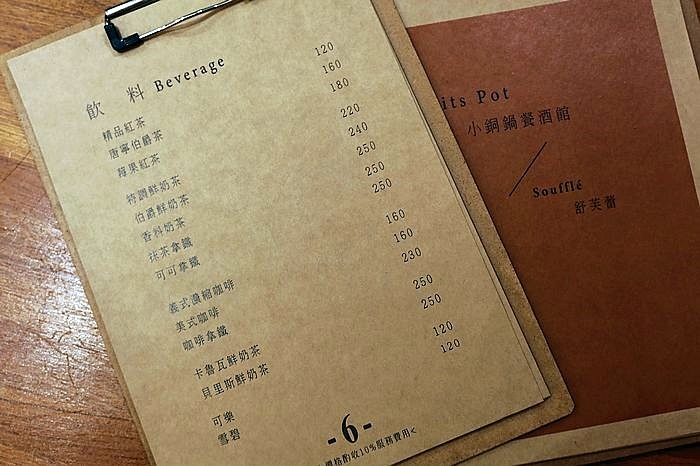 飲料 Beverage
精品紅茶 120
唐寧伯爵茶 160
莓果紅茶 180
特調鮮奶茶 220
伯爵鮮奶茶 240
香料奶茶 250
抹茶拿鐵 250
可可拿鐵 250
義式濃縮咖啡 160
美式咖啡 160
咖啡拿鐵 230
卡魯瓦鮮奶茶 250
貝里斯鮮奶茶 250
可樂 120
雪碧 120
-6-
價格酌收10%服務費用<
its Pot
小銅鍋餐酒館
Soufflé
舒芙蕾